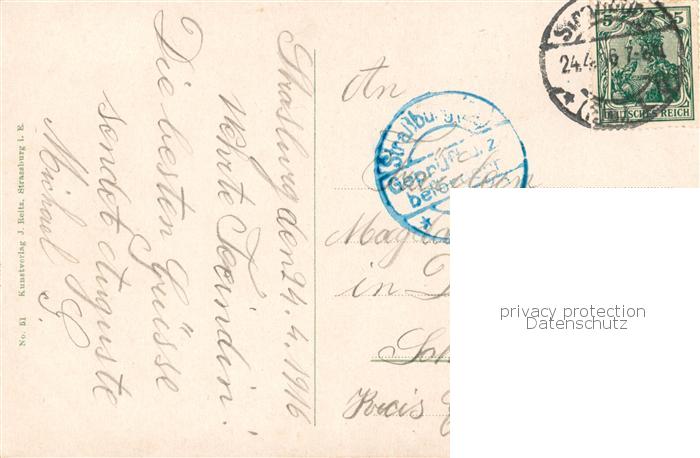 Strassburg den 24.4.1916
Wehrte Freindin!
Die besten Grüsse
sendet Auguste
Michael
No. 51 Kunstverlag J. Reitz, Strassburg i. E.
An
in
Kreis
Straßburg
Geprüft u. z
DEUTSCHES REICH
5 5
24.4. 16 7-8
privacy protection
Datenschutz